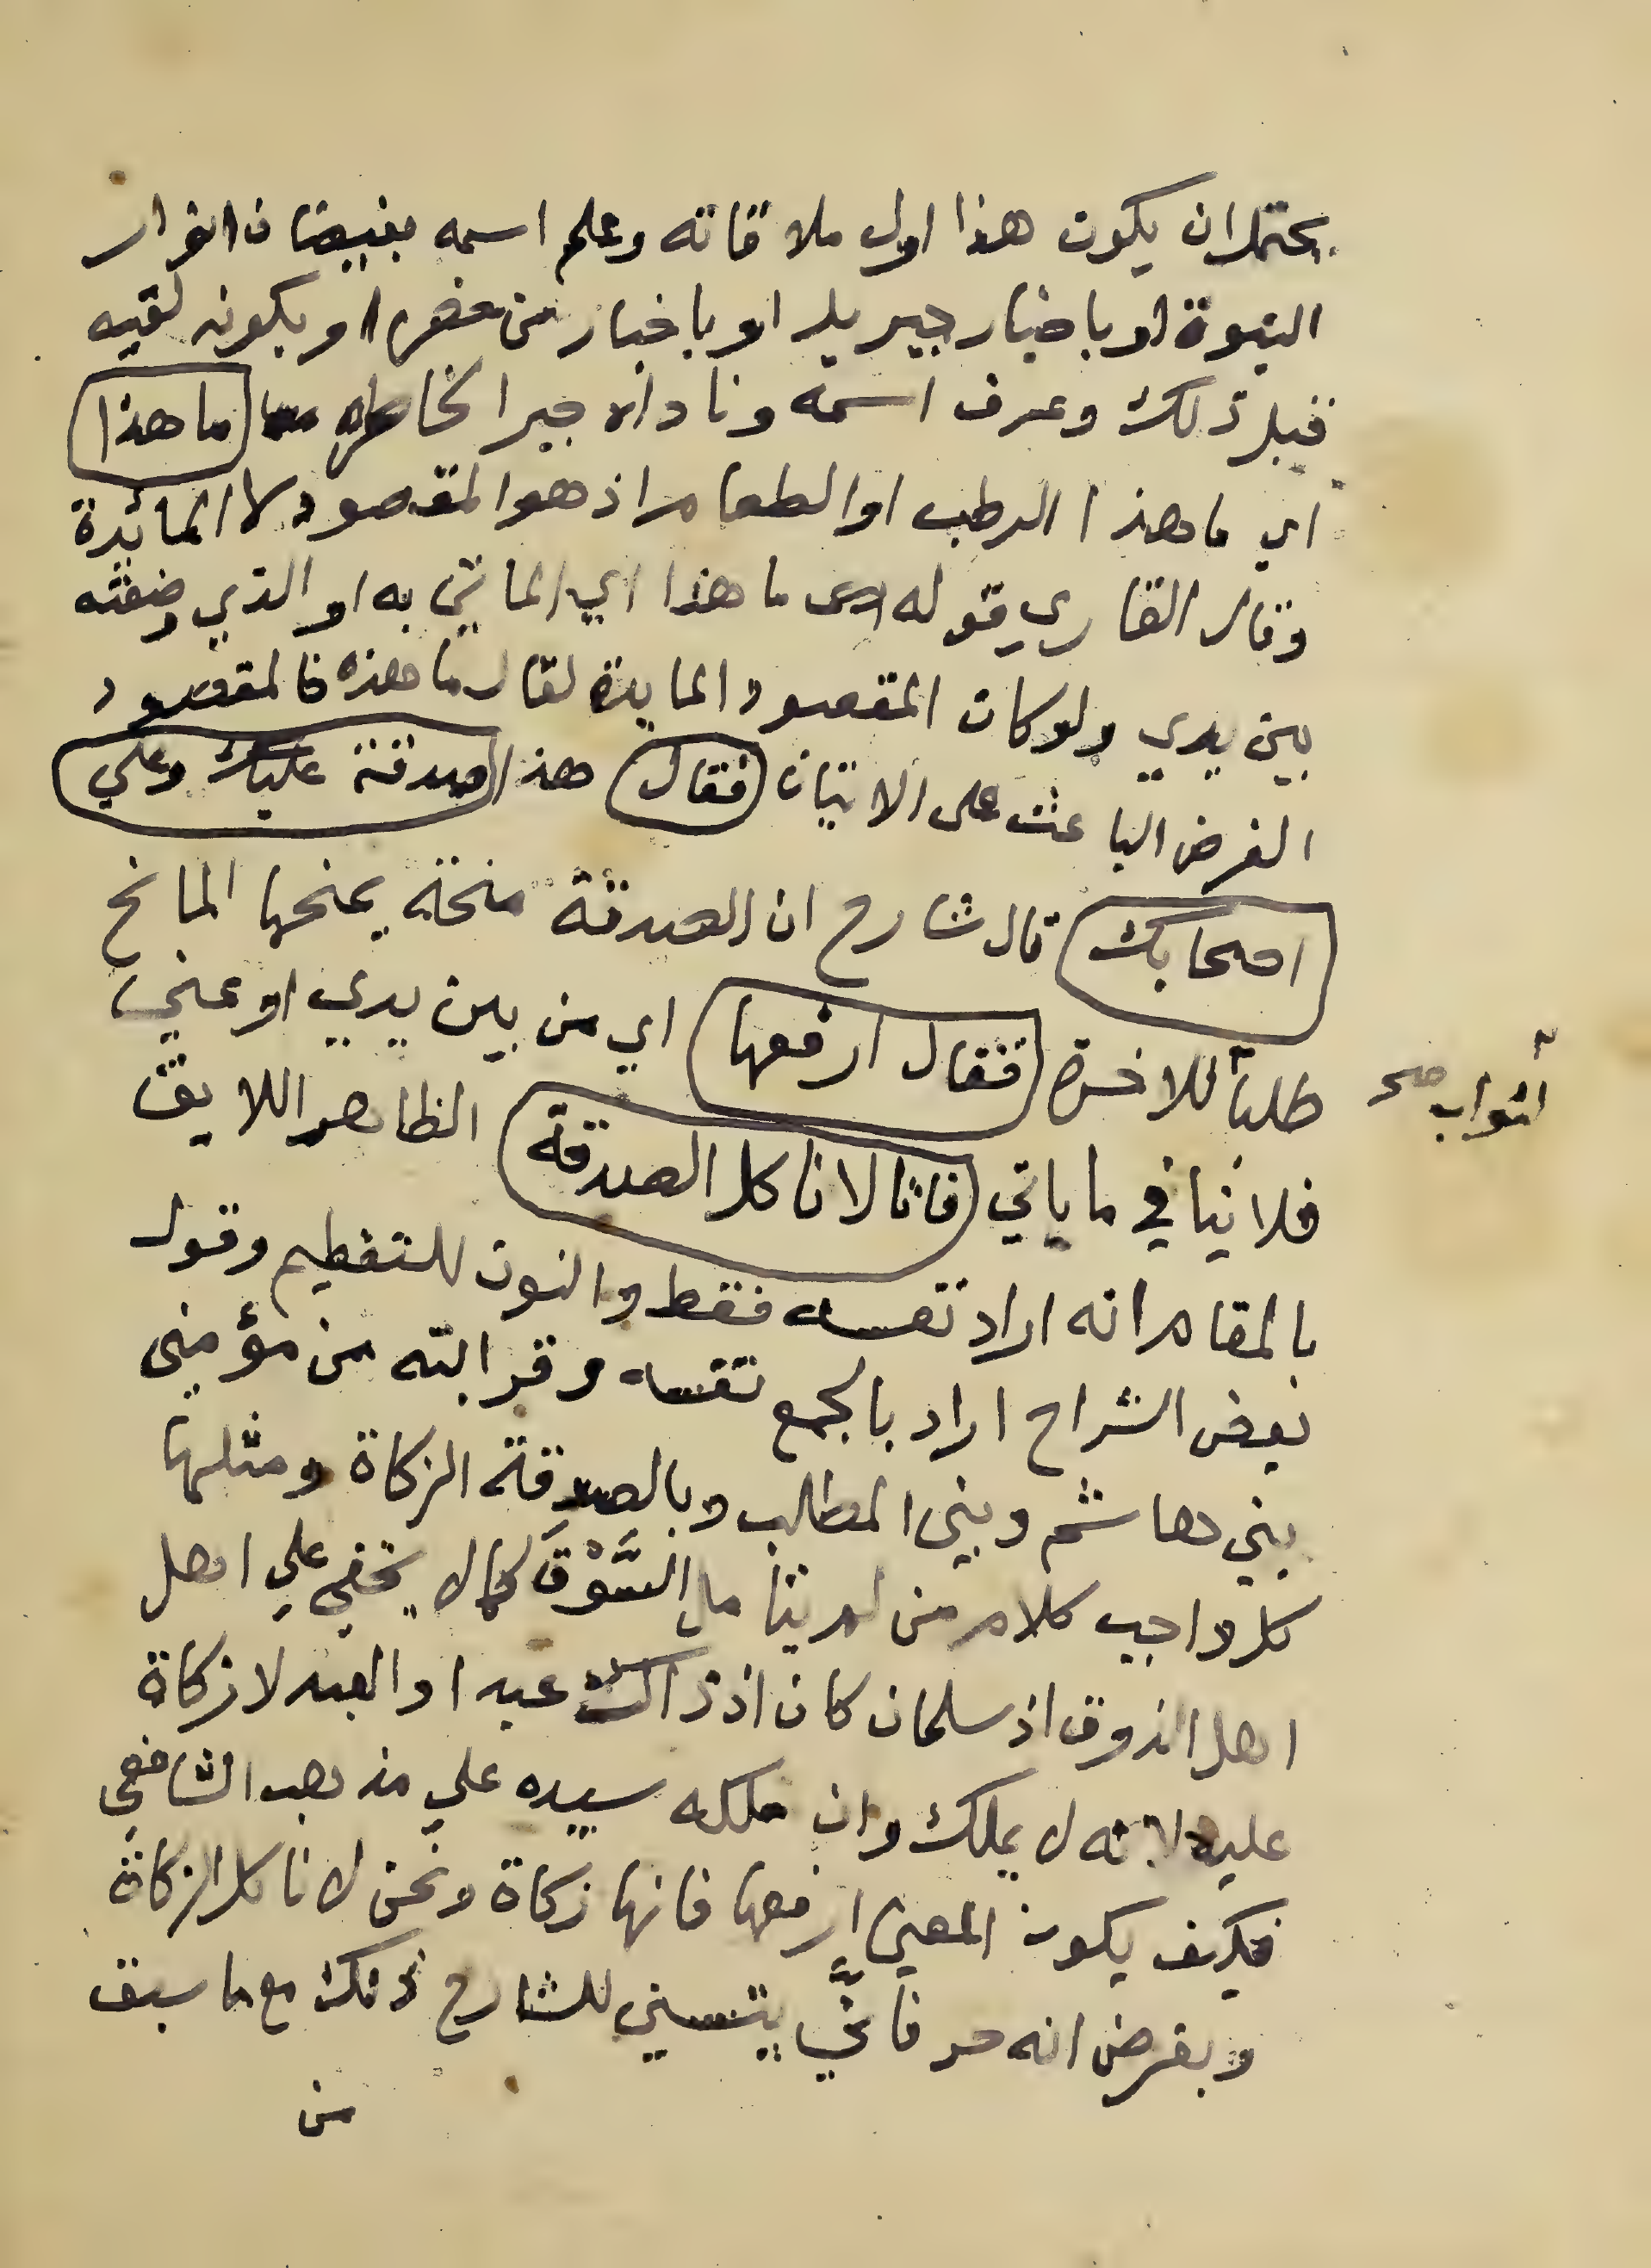 يحتمل ان يكون هذا اول ملاقاته وعلم اسمه بفيضان انوار
النبوة او باخبار جبريل او باخبار من حضر او بكونه لقيه
قبل ذلك وعرف اسمه وناداه جبرا لخاطره ما هذا
اي ما هذا الرطب او الطعام اذ هو المقصود لا المائدة
وقال القاري قوله ما هذا اي الماتي به او الذي وضعته
بين يدي ولو كان المقصود المايدة لقال ما هذه فالمقصود
الغرض الباعث على الاتيان فقال هذا صدقة عليك وعلي
اصحابك قال شارح ان الصدقة منحة يمنحها المانح
طلبا للاخرة فقال ارفعها اي من بين يدي او عني
لثواب صح
فلا ينافي ما ياتي فانا لا ناكل الصدقة الظاهر اللايق
بالمقام انه اراد نفسه فقط والنون للتعظيم وقول
بعض الشراح اراد بالجمع نفسه وقرابته من مؤمني
بني هاشم وبني المطلب وبالصدقة الزكاة ومثلها
كل واجب كلام من لم يتامل السَّوْقَ كما لا يخفي علي اهل
اهل الذوق اذ سلمان كان اذ ذاك عبدا والعبد لا زكاة
عليه لانه لا يملك وان ملكه سيده علي مذهب الشافعي
فكيف يكون المعني ارفعها فانها زكاة ونحن لا ناكل الزكاة
وبفرض انه حر فانَّي يتسني للشارح ذلك مع ما سبق
من